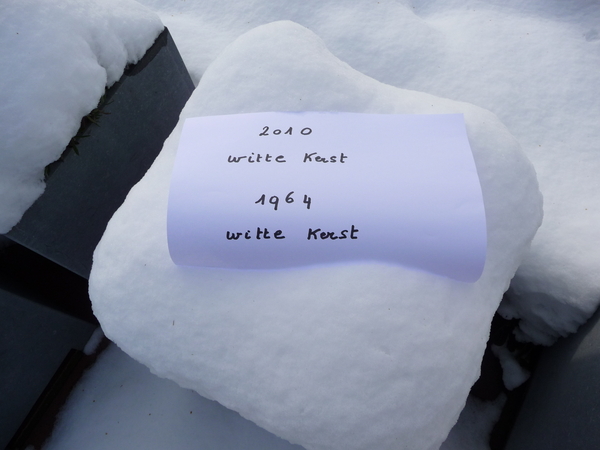 2010
witte Kerst
1964
witte Kerst